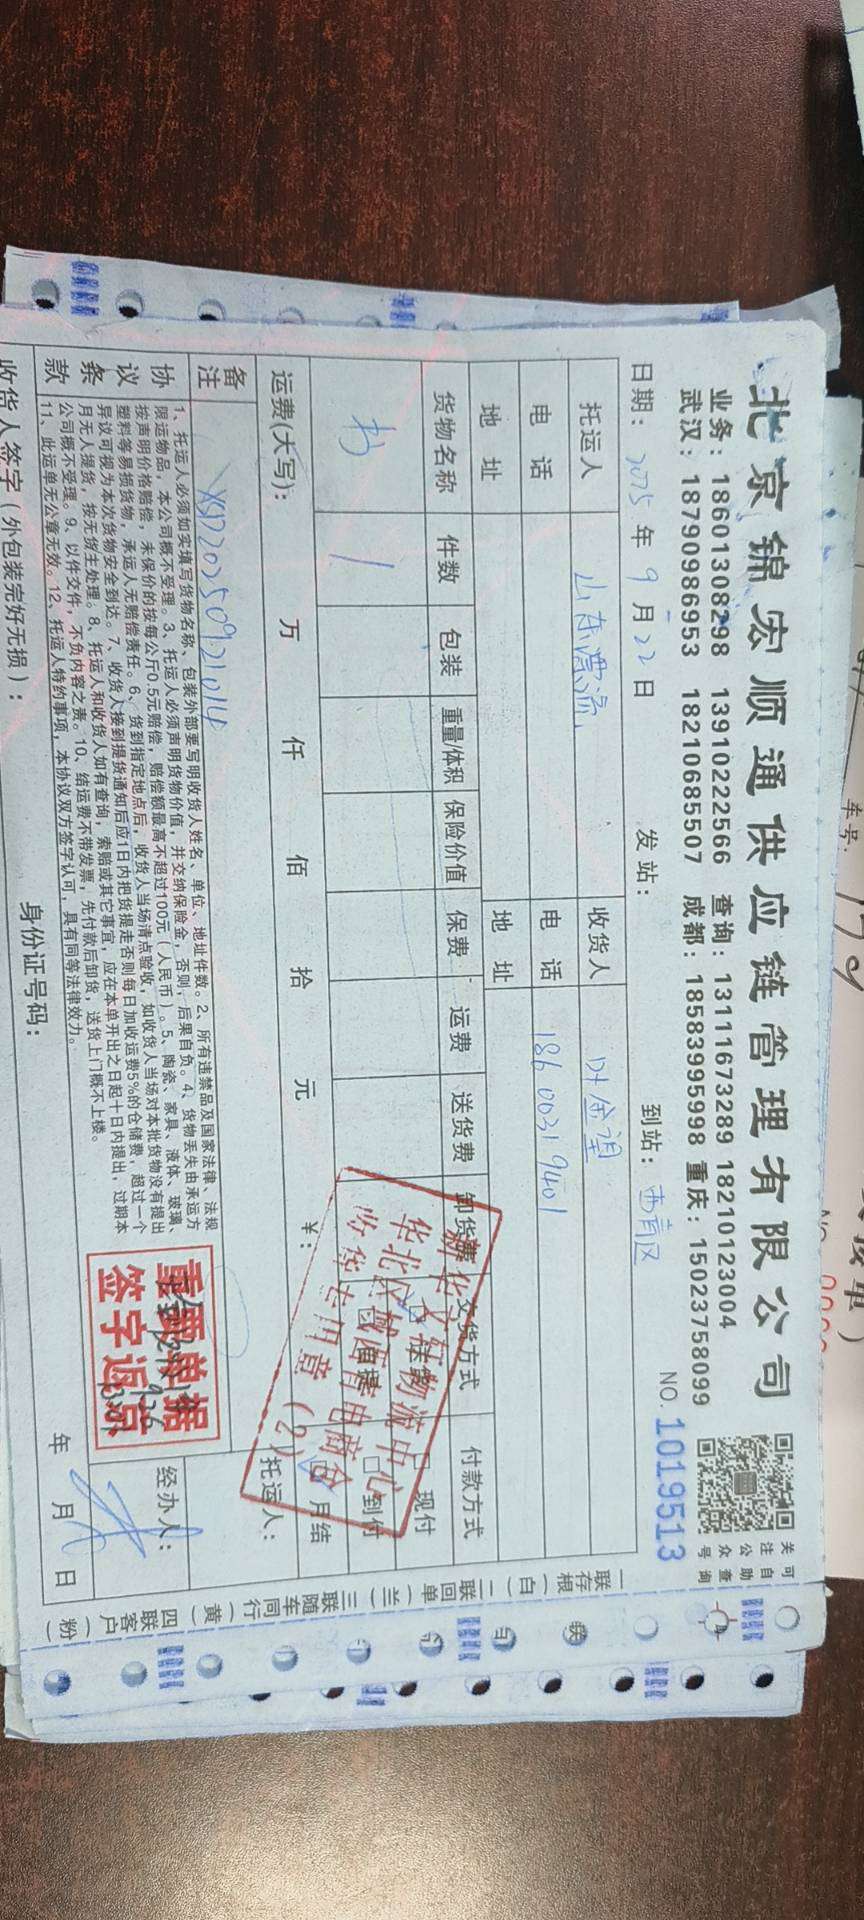 北京锦宏顺通供应链管理有限公司
业务：18601308298 13910222566 查询：13111673289 18210123004
武汉：18790986953 18210685507 成都：18583995998 重庆：15023758099
关注公众号
可自助查询
日期：2025年9月22日 发站： 到站：西青区 NO.1019513
托运人 山东 收货人 叶金望
电话 电话 18600319401
地址 地址
货物名称 件数 包装 重量/体积 保险价值 保费 运费 送货费 卸货费 交货方式 付款方式
书 1 送货 自提 现付 到付 月结
运费(大写)： 万 仟 佰 拾 元 ¥： 托运人：
新华文轩物流中心
华北区域店电商仓
收货专用章（2）
备注 XSD20250921014
协议条款
1、托运人必须如实填写货物名称、包装外部要写明收货人姓名、单位、地址件数。2、所有违禁品及国家法律、法规
限运物品，本公司概不受理。3、托运人必须声明货物价值，并交纳保险金，否则，后果自负。4、货物丢失由承运方
按声明价格赔偿，未保价的按每公斤0.5元赔偿，赔偿额最高不超过100元（人民币）。5、陶瓷、家具、液体、玻璃、
塑料等易损货物，承运人无赔偿责任。6、货到指定地点后，收货人当场清点验收，如收货人当场对本批货物没有提出
异议可视为本次货物安全到达。7、收货人接到提货通知后应1日内把货提走否则每日加收运费5%的仓储费，超过一个
月无人提货，按无货主处理。8、托运人和收货人如有查询，索赔或其它事宜，应在本单开出之日起十日内提出，过期本
公司概不受理。9、以件交件，不负内容之责。10、结运费不带发票，先付款后卸货，送货上门概不上楼。
11、此运单无公章无效。12、托运人特约事项，本协议双方签字认可，具有同等法律效力。
重要单据
签字返京
经办人：
收货人签字（外包装完好无损）： 身份证号码： 年 月 日
一联存根（白） 二联回单（兰） 三联随车同行（黄） 四联客户（粉）
车号：